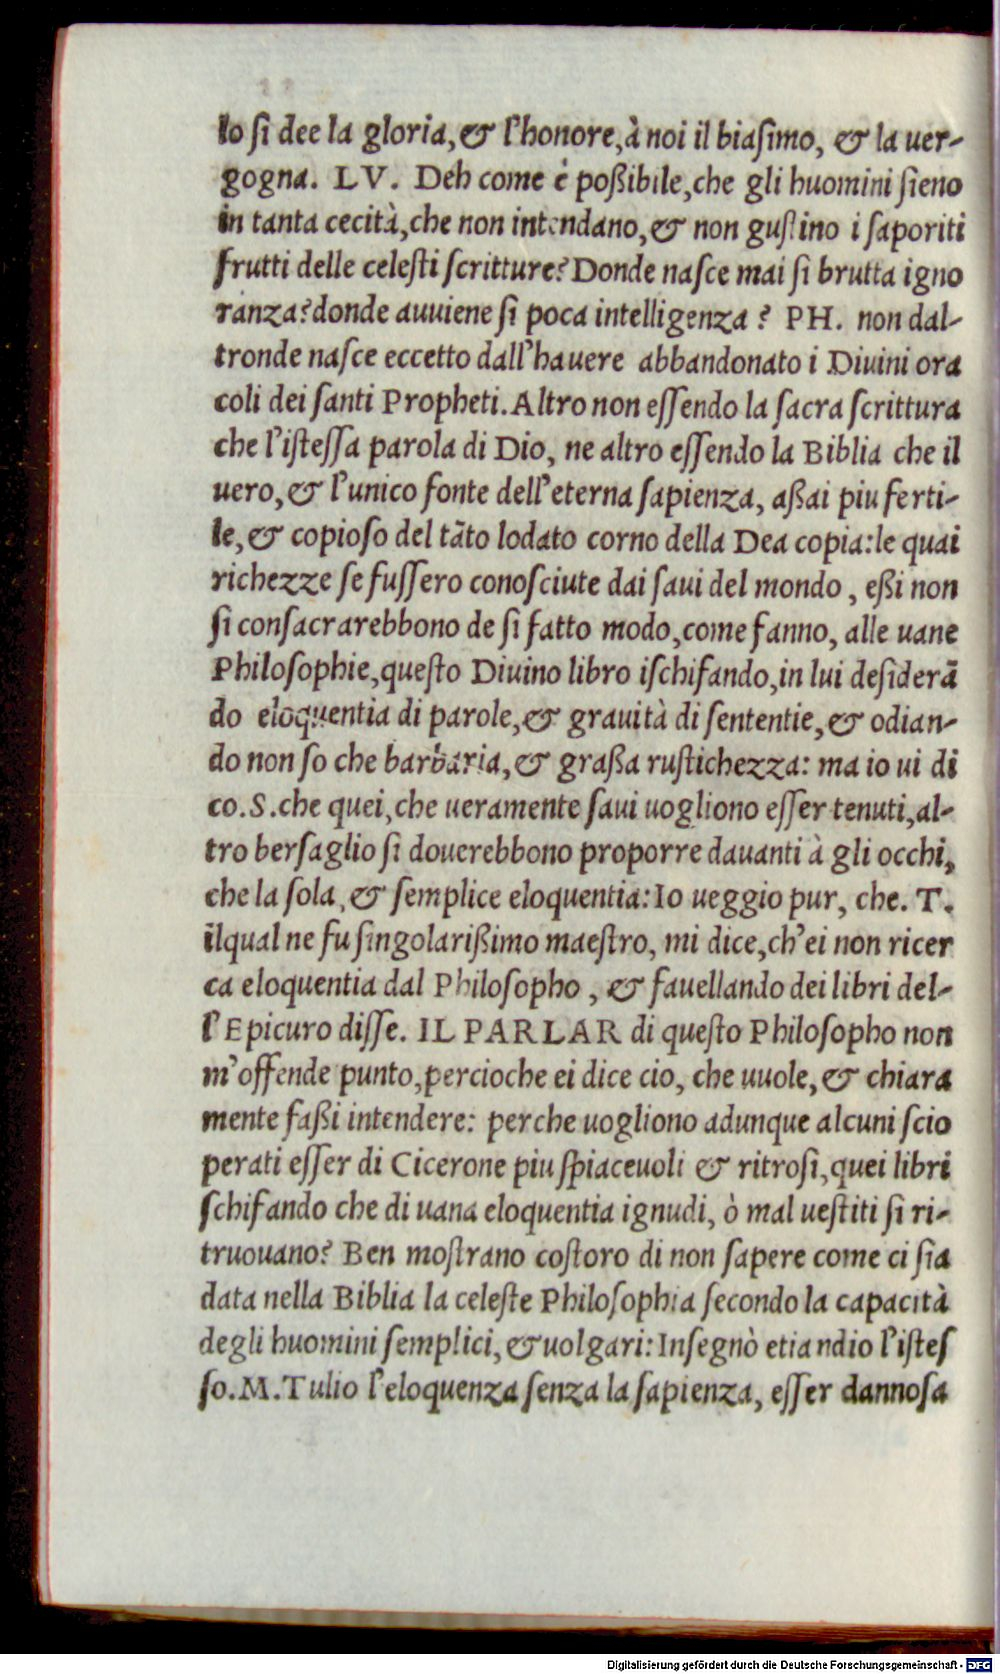 lo ſi dee la gloria, & l'honore, à noi il biaſimo, & la uer-
gogna. LV. Deh come è poßibile, che gli huomini ſieno
in tanta cecità, che non intendano, & non guſtino i ſaporiti
frutti delle celeſti ſcritture? Donde naſce mai ſi brutta igno
ranza? donde auuiene ſi poca intelligenza? PH. non dal-
tronde naſce eccetto dall'hauere abbandonato i Diuini ora
coli dei ſanti Propheti. Altro non eſſendo la ſacra ſcrittura
che l'iſteſſa parola di Dio, ne altro eſſendo la Biblia che il
uero, & l'unico fonte dell'eterna ſapienza, aßai piu ferti-
le, & copioſo del tãto lodato corno della Dea copia: le quai
richezze ſe fuſſero conoſciute dai ſaui del mondo, eßi non
ſi conſacrarebbono de ſi fatto modo, come fanno, alle uane
Philoſophie, queſto Diuino libro iſchifando, in lui deſiderã
do eloquentia di parole, & grauità di ſententie, & odian-
do non ſo che barbaria, & graßa ruſtichezza: ma io ui di
co. S. che quei, che ueramente ſaui uogliono eſſer tenuti, al-
tro berſaglio ſi douerebbono proporre dauanti à gli occhi,
che la ſola, & ſemplice eloquentia: Io ueggio pur, che. T.
ilqual ne fu ſingolarißimo maeſtro, mi dice, ch'ei non ricer
ca eloquentia dal Philoſopho, & fauellando dei libri del-
l'Epicuro diſſe. IL PARLAR di queſto Philoſopho non
m'offende punto, percioche ei dice cio, che uuole, & chiara
mente faßi intendere: perche uogliono adunque alcuni ſcio
perati eſſer di Cicerone piu ſpiaceuoli & ritroſi, quei libri
ſchifando che di uana eloquentia ignudi, ò mal ueſtiti ſi ri-
truouano? Ben moſtrano coſtoro di non ſapere come ci ſia
data nella Biblia la celeſte Philoſophia ſecondo la capacità
degli huomini ſemplici, & uolgari: Inſegnò etiandio l'iſteſ
ſo. M. Tulio l'eloquenza ſenza la ſapienza, eſſer dannoſa
Digitalisierung gefördert durch die Deutsche Forschungsgemeinschaft - DFG